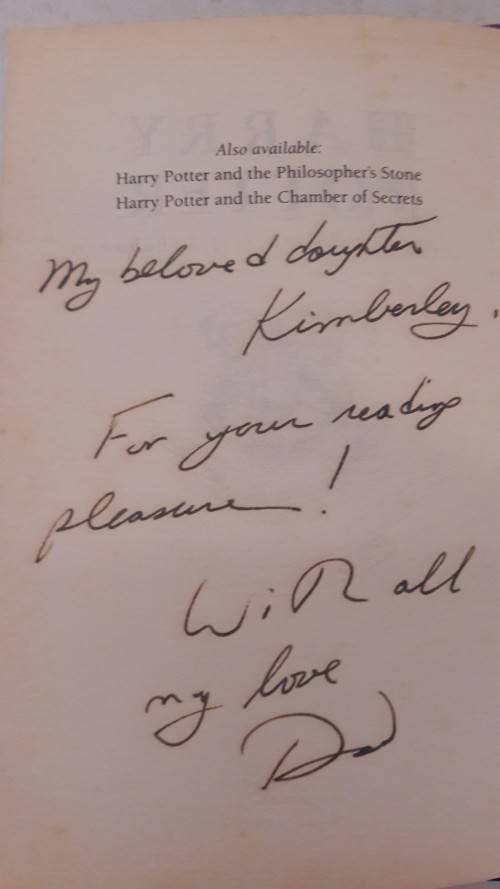 Also available:
Harry Potter and the Philosopher's Stone
Harry Potter and the Chamber of Secrets
My beloved daughter
Kimberley.
For your reading
pleasure!
With all
my love
Dad